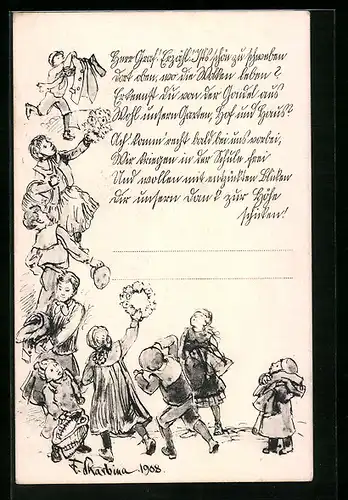 Herr Graf! Erzähl! Ist's schön zu schweben
dort oben, wo die Wolken leben?
Erkennst Du von der Gondel aus
Wohl unsern Garten, Hof und Haus?
Ach! komm' recht bald bei uns vorbei,
Wir kriegen in der Schule frei
Und wollen mit entzückten Blicken
Dir unsern Dank zur Höhe
schicken!
F. Skarbina 1908.